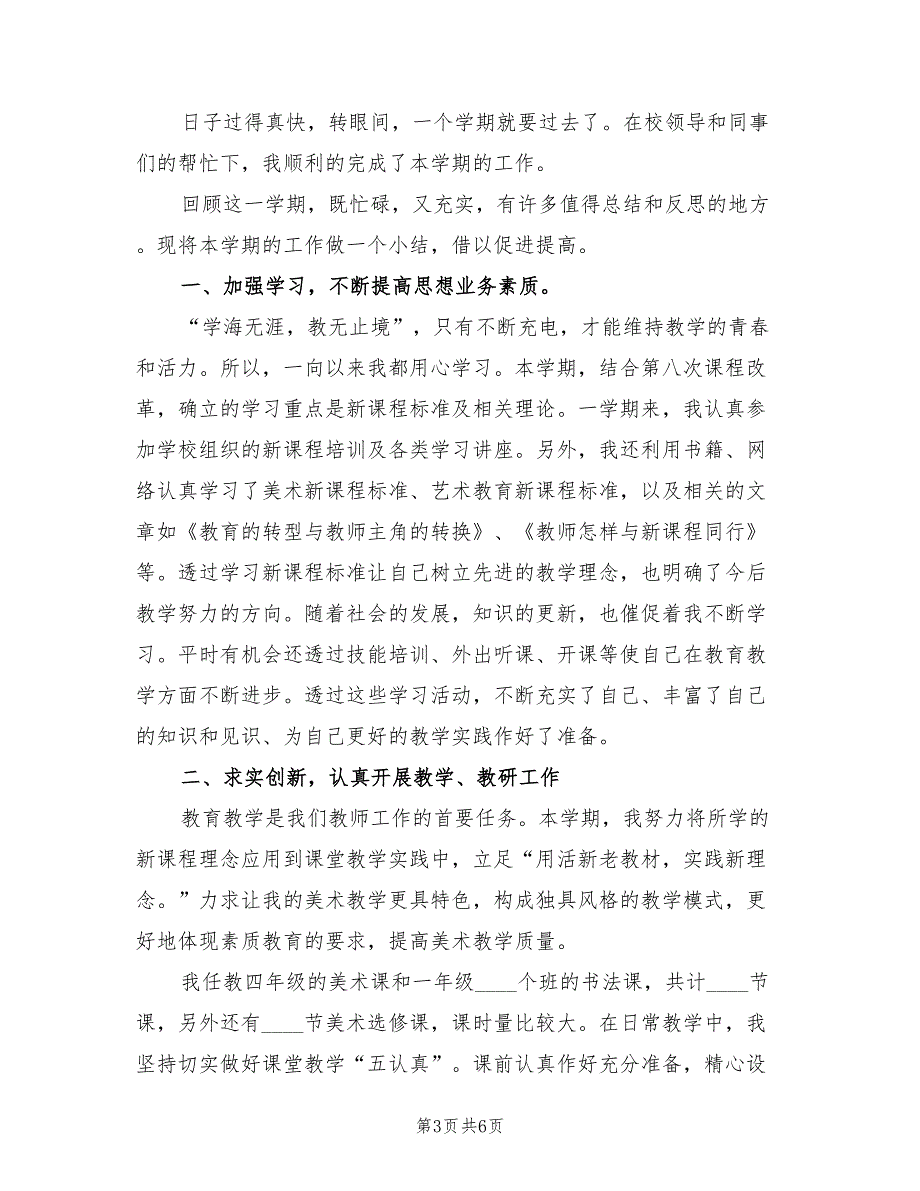 日子过得真快，转眼间，一个学期就要过去了。在校领导和同事
们的帮忙下，我顺利的完成了本学期的工作。
回顾这一学期，既忙碌，又充实，有许多值得总结和反思的地方
。现将本学期的工作做一个小结，借以促进提高。
一、加强学习，不断提高思想业务素质。
“学海无涯，教无止境”，只有不断充电，才能维持教学的青春
和活力。所以，一向以来我都用心学习。本学期，结合第八次课程改
革，确立的学习重点是新课程标准及相关理论。一学期来，我认真参
加学校组织的新课程培训及各类学习讲座。另外，我还利用书籍、网
络认真学习了美术新课程标准、艺术教育新课程标准，以及相关的文
章如《教育的转型与教师主角的转换》、《教师怎样与新课程同行》
等。透过学习新课程标准让自己树立先进的教学理念，也明确了今后
教学努力的方向。随着社会的发展，知识的更新，也催促着我不断学
习。平时有机会还透过技能培训、外出听课、开课等使自己在教育教
学方面不断进步。透过这些学习活动，不断充实了自己、丰富了自己
的知识和见识、为自己更好的教学实践作好了准备。
二、求实创新，认真开展教学、教研工作
教育教学是我们教师工作的首要任务。本学期，我努力将所学的
新课程理念应用到课堂教学实践中，立足“用活新老教材，实践新理
念。”力求让我的美术教学更具特色，构成独具风格的教学模式，更
好地体现素质教育的要求，提高美术教学质量。
我任教四年级的美术课和一年级____个班的书法课，共计____节
课，另外还有____节美术选修课，课时量比较大。在日常教学中，我
坚持切实做好课堂教学“五认真”。课前认真作好充分准备，精心设
第3页共6页